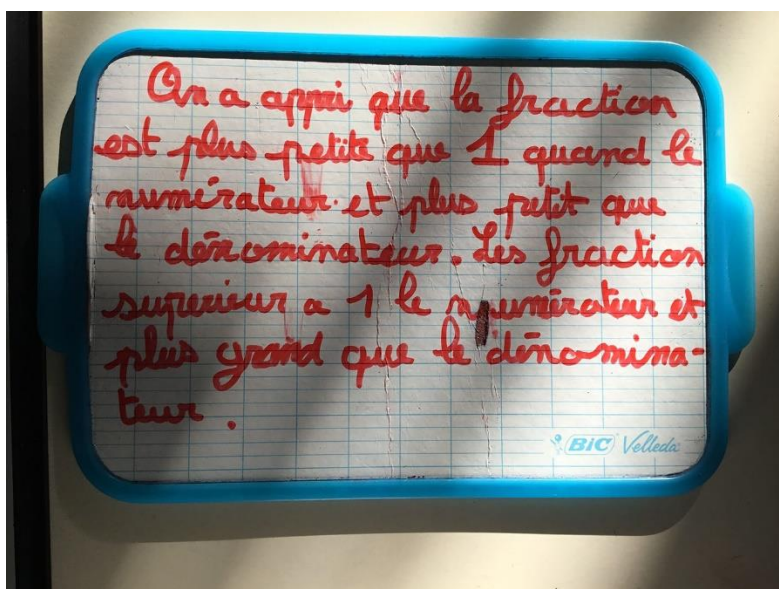 On a appri que la fraction
est plus petite que 1 quand le
numérateur et plus petit que
le dénominateur. Les fraction
superieur a 1 le numérateur et
plus grand que le dénomina-
teur.
BiC Velleda